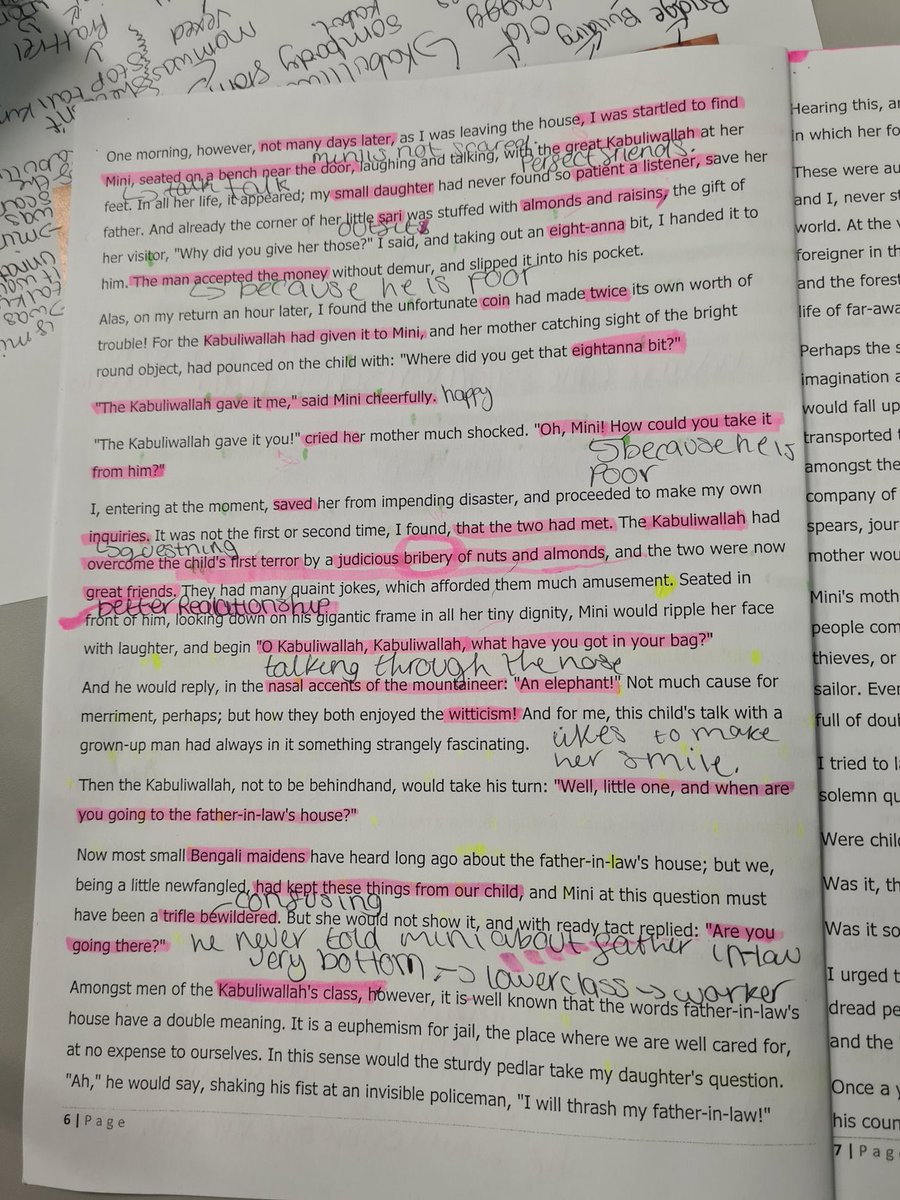 Bridge Building
old
somebody
story
stop
vexed
One morning, however, not many days later, as I was leaving the house, I was startled to find
mini is not scared
Mini, seated on a bench near the door, laughing and talking, with the great Kabuliwallah at her
talk talk
Perfect friends.
feet. In all her life, it appeared; my small daughter had never found so patient a listener, save her
father. And already the corner of her little sari was stuffed with almonds and raisins, the gift of
her visitor, "Why did you give her those?" I said, and taking out an eight-anna bit, I handed it to
him. The man accepted the money without demur, and slipped it into his pocket.
because he is poor
Alas, on my return an hour later, I found the unfortunate coin had made twice its own worth of
trouble! For the Kabuliwallah had given it to Mini, and her mother catching sight of the bright
round object, had pounced on the child with: "Where did you get that eightanna bit?"
"The Kabuliwallah gave it me," said Mini cheerfully. happy
"The Kabuliwallah gave it you!" cried her mother much shocked. "Oh, Mini! How could you take it
from him?"
because he is
poor
I, entering at the moment, saved her from impending disaster, and proceeded to make my own
inquiries. It was not the first or second time, I found, that the two had met. The Kabuliwallah had
questning
overcome the child's first terror by a judicious bribery of nuts and almonds, and the two were now
great friends. They had many quaint jokes, which afforded them much amusement. Seated in
better Realationship
front of him, looking down on his gigantic frame in all her tiny dignity, Mini would ripple her face
with laughter, and begin "O Kabuliwallah, Kabuliwallah, what have you got in your bag?"
talking through the nose
And he would reply, in the nasal accents of the mountaineer: "An elephant!" Not much cause for
merriment, perhaps; but how they both enjoyed the witticism! And for me, this child's talk with a
grown-up man had always in it something strangely fascinating.
likes to make
her smile.
Then the Kabuliwallah, not to be behindhand, would take his turn: "Well, little one, and when are
you going to the father-in-law's house?"
Now most small Bengali maidens have heard long ago about the father-in-law's house; but we,
being a little newfangled, had kept these things from our child, and Mini at this question must
confusing
have been a trifle bewildered. But she would not show it, and with ready tact replied: "Are you
going there?" he never told mini about father in-law
very bottom → lowerclass → worker
Amongst men of the Kabuliwallah's class, however, it is well known that the words father-in-law's
house have a double meaning. It is a euphemism for jail, the place where we are well cared for,
at no expense to ourselves. In this sense would the sturdy pedlar take my daughter's question.
"Ah," he would say, shaking his fist at an invisible policeman, "I will thrash my father-in-law!"
6 | Page
Hearing this, 
in which her fo
These were au
and I, never st
world. At the v
foreigner in th
and the forest
life of far-awa
Perhaps the s
imagination a
would fall up
transported t
amongst the
company of
spears, jour
mother wou
Mini's moth
people com
thieves, or
sailor. Ever
full of doul
I tried to l
solemn qu
Were chil
Was it, th
Was it so
I urged t
dread pe
and the
Once a y
his coun
7 | Pag